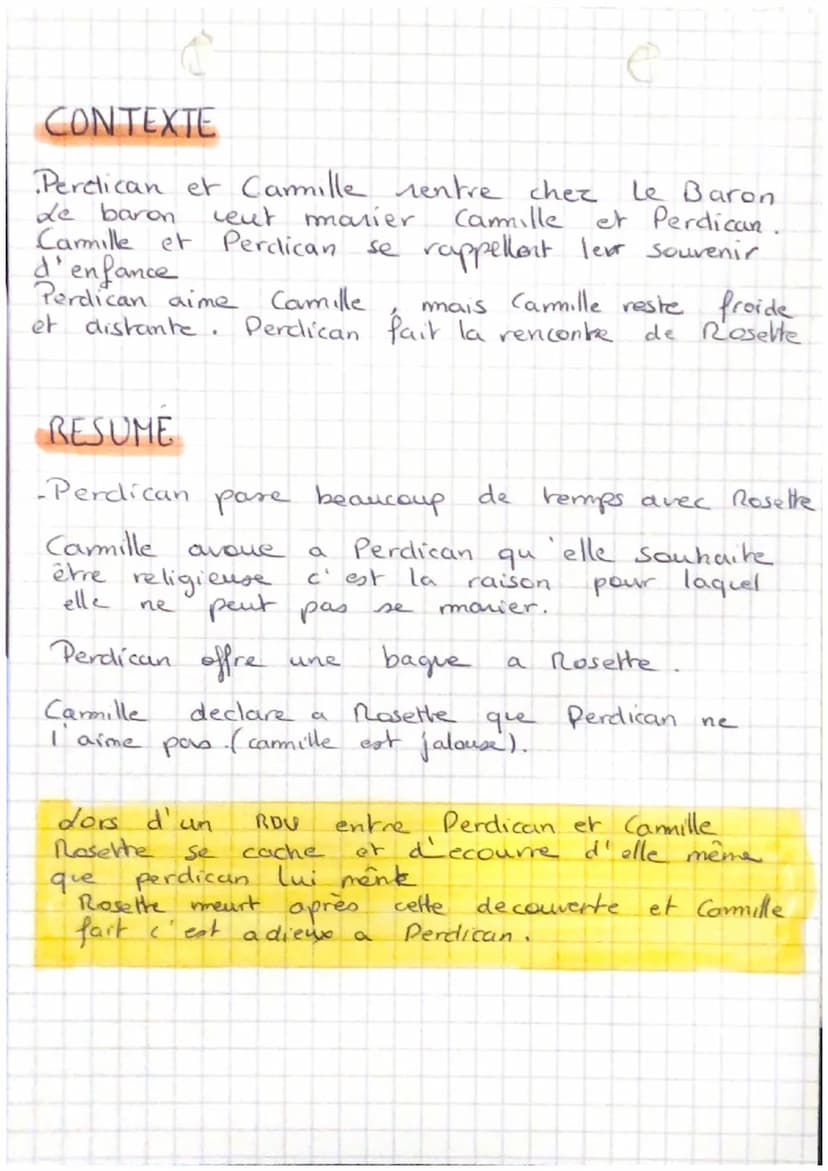 CONTEXTE
.Perdican et Camille rentre chez Le Baron
Le baron veut marier Camille et Perdican.
Camille et Perdican se rappellent leur souvenir
d'enfance
Perdican aime Camille, mais Camille reste froide
et distante. Perdican fait la rencontre de Rosette
RESUMÉ
-Perdican passe beaucoup de temps avec Rosette
Camille avoue a Perdican qu'elle souhaite
être religieuse c'est la raison pour laquel
elle ne peut pas se marier.
Perdican offre une bague a Rosette.
Camille declare a Rosette que Perdican ne
l'aime pas.(camille est jalouse).
Lors d'un RDV entre Perdican et Camille
Rosette se cache et d'ecouvre d'elle même
que perdican lui ment
Rosette meurt après cette decouverte et Camille
fait c'est adieux a Perdican.